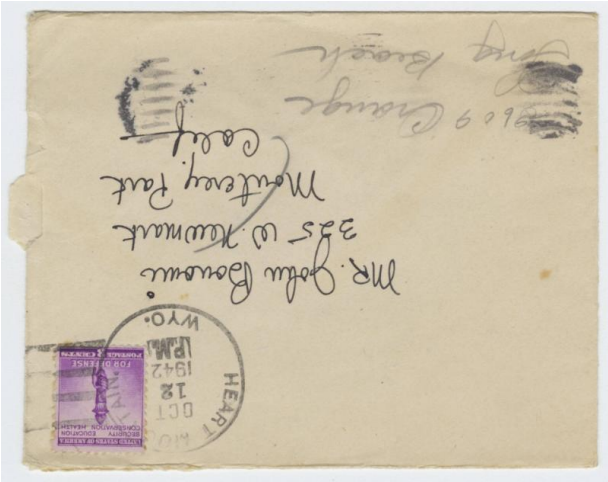 HEART MOUNTAIN
OCT
12
1942
P.M.
WYO.
UNITED STATES OF AMERICA
SECURITY EDUCATION
CONSERVATION HEALTH
FOR DEFENSE
POSTAGE 3 CENTS
MR. John Bonomi
325 W. Newmark
Monterey Park
Calif
Orange
Long Beach